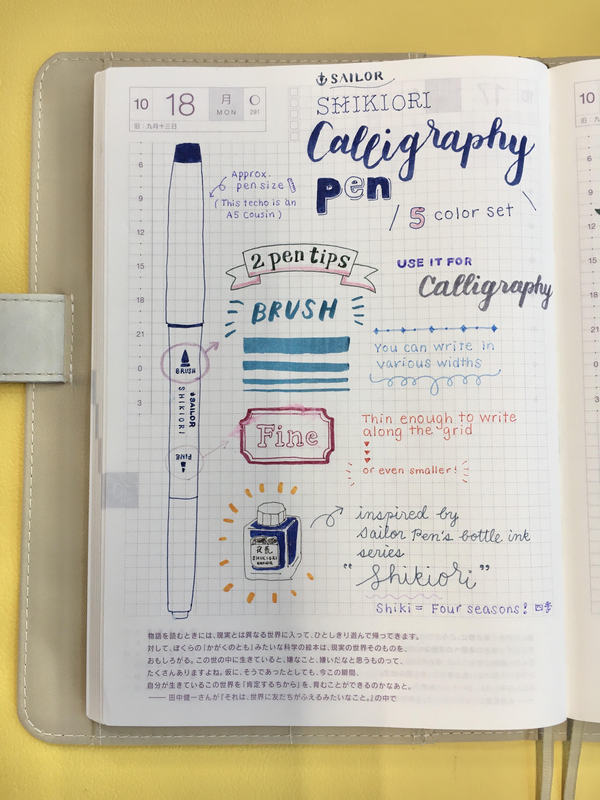 SAILOR
SHIKIORI
Calligraphy
pen
/ 5 color set \
10 18 月 MON 291
旧:九月十三日
Approx.
pen size
(This techo is an
A5 cousin)
6
9
12
15
18
21
0
3
2 pen tips
USE IT FOR
Calligraphy
BRUSH
You can write in
various widths
BRUSH
SAILOR
SHIKIORI
FINE
Fine
Thin enough to write
along the grid
or even smaller!
SHIKIORI
inspired by
Sailor Pen's bottle ink
series
"Shikiori"
Shiki = Four seasons! 四季
物語を読むときには、現実とは異なる世界に入って、ひとしきり遊んで帰ってきます。
対して、ぼくらの「かがくのとも」みたいな科学の絵本は、現実の世界そのものを、
おもしろがる。この世の中に生きていると、嫌なこと、嫌いだなと思うものって、
たくさんありますよね。仮に、そうであったとしても、今この瞬間、
自分が生きているこの世界を「肯定するちから」を、育むことができるのかなあと。
——田中健一さんが『それは、世界に友だちがふえるみたいなこと。』の中で
10